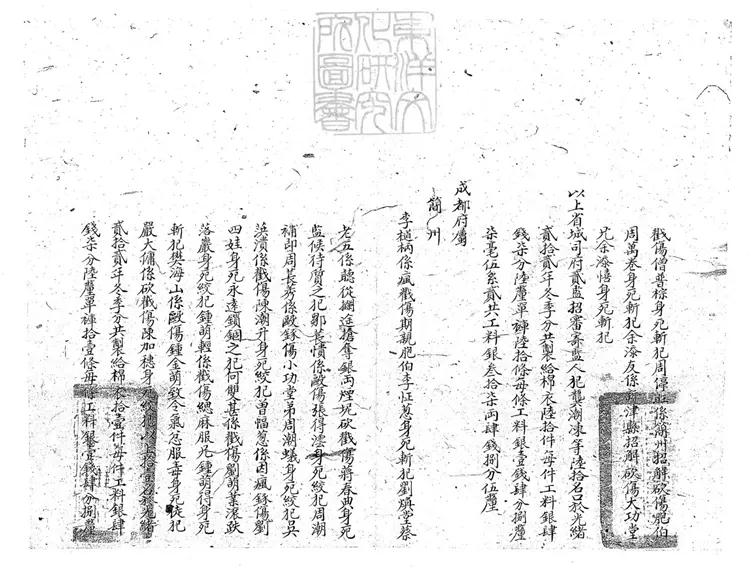 東洋文化研究所圖書
戳傷僧普椋身死斬犯周停魁係簡州招解砍傷胞伯
周萬春身死斬犯余添友係新津縣招解砍傷大功堂
兄余添禧身死斬犯
以上省城司府貳監招審寄監人犯龔潮凍等陸拾名口於光緒
貳拾貳年冬季分共製給棉衣陸拾件每件工料銀肆
錢柒分陸釐單褲陸拾條每條工料銀壹錢肆分捌釐
柒毫伍系貳共工料銀叁拾柒兩肆錢捌分伍釐
成都府屬
簡州
李槌柄係瘋戳傷期親胞伯李怔葱身死斬犯劉騏堂蔡
老五係聽從糾迄搶奪銀兩煙坭砍戳傷蔣春典身死
監候待質之犯鄒長慣係毆傷張得澐身死絞犯周潮
補即周長秀係毆鎵傷小功堂弟周潮蟻身死絞犯吳
浜濆係戳傷陳潮升身死絞犯曾幅葱係因瘋鎵傷劉
四娃身死永遠鎖錮之犯何雙甚係戳傷劉萌葦滾跌
落巖身死絞犯鍾萌輕係戳傷緦麻服兄鍾萌得身死
斬犯樊海山係毆傷鍾金萌致令氣忿服毒身死徒犯
嚴大傭係砍戳傷陳加穗身死絞犯以上拾壹名於光緒
貳拾貳年冬季分共製給棉衣拾壹件每件工料銀肆
錢柒分陸釐單褲拾壹條每條工料銀壹錢肆分捌釐